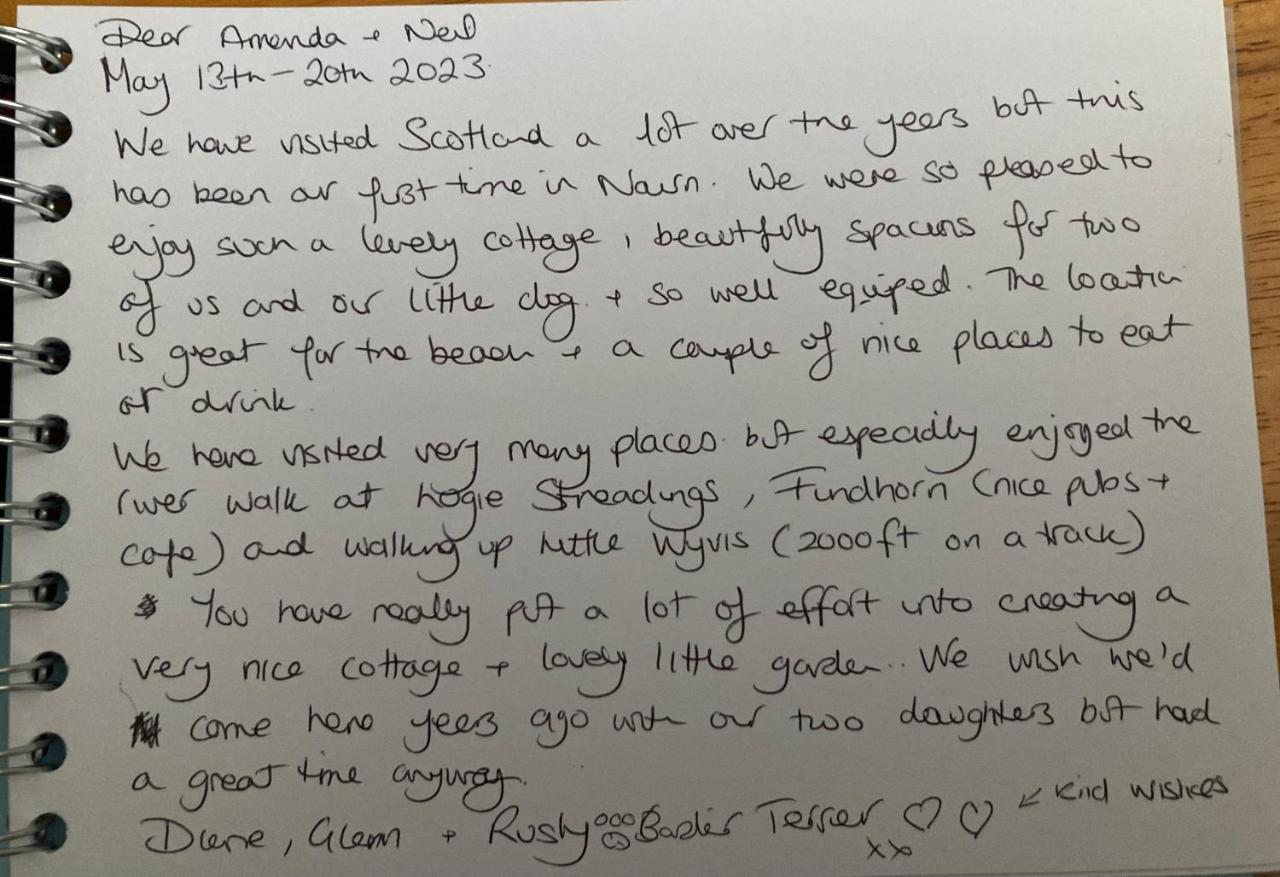 Dear Amanda + Neil
May 13th - 20th 2023
We have visited Scotland a lot over the years but this
has been our first time in Nairn. We were so pleased to
enjoy such a lovely cottage, beautifully spacious for two
of us and our little dog. + so well equiped. The location
is great for the beach + a couple of nice places to eat
or drink.
We have visited very many places. but especially enjoyed the
river walk at Logie Streadings, Findhorn (nice pubs +
cafe) and walking up little Wyvis (2000ft on a track)
You have really put a lot of effort into creating a
very nice cottage + lovely little garden.. We wish we'd
come here years ago with our two daughters but had
a great time anyway.
Diane, Glenn + Rusty Border Terrier ♡ ♡ ↙ Kind wishes
xx